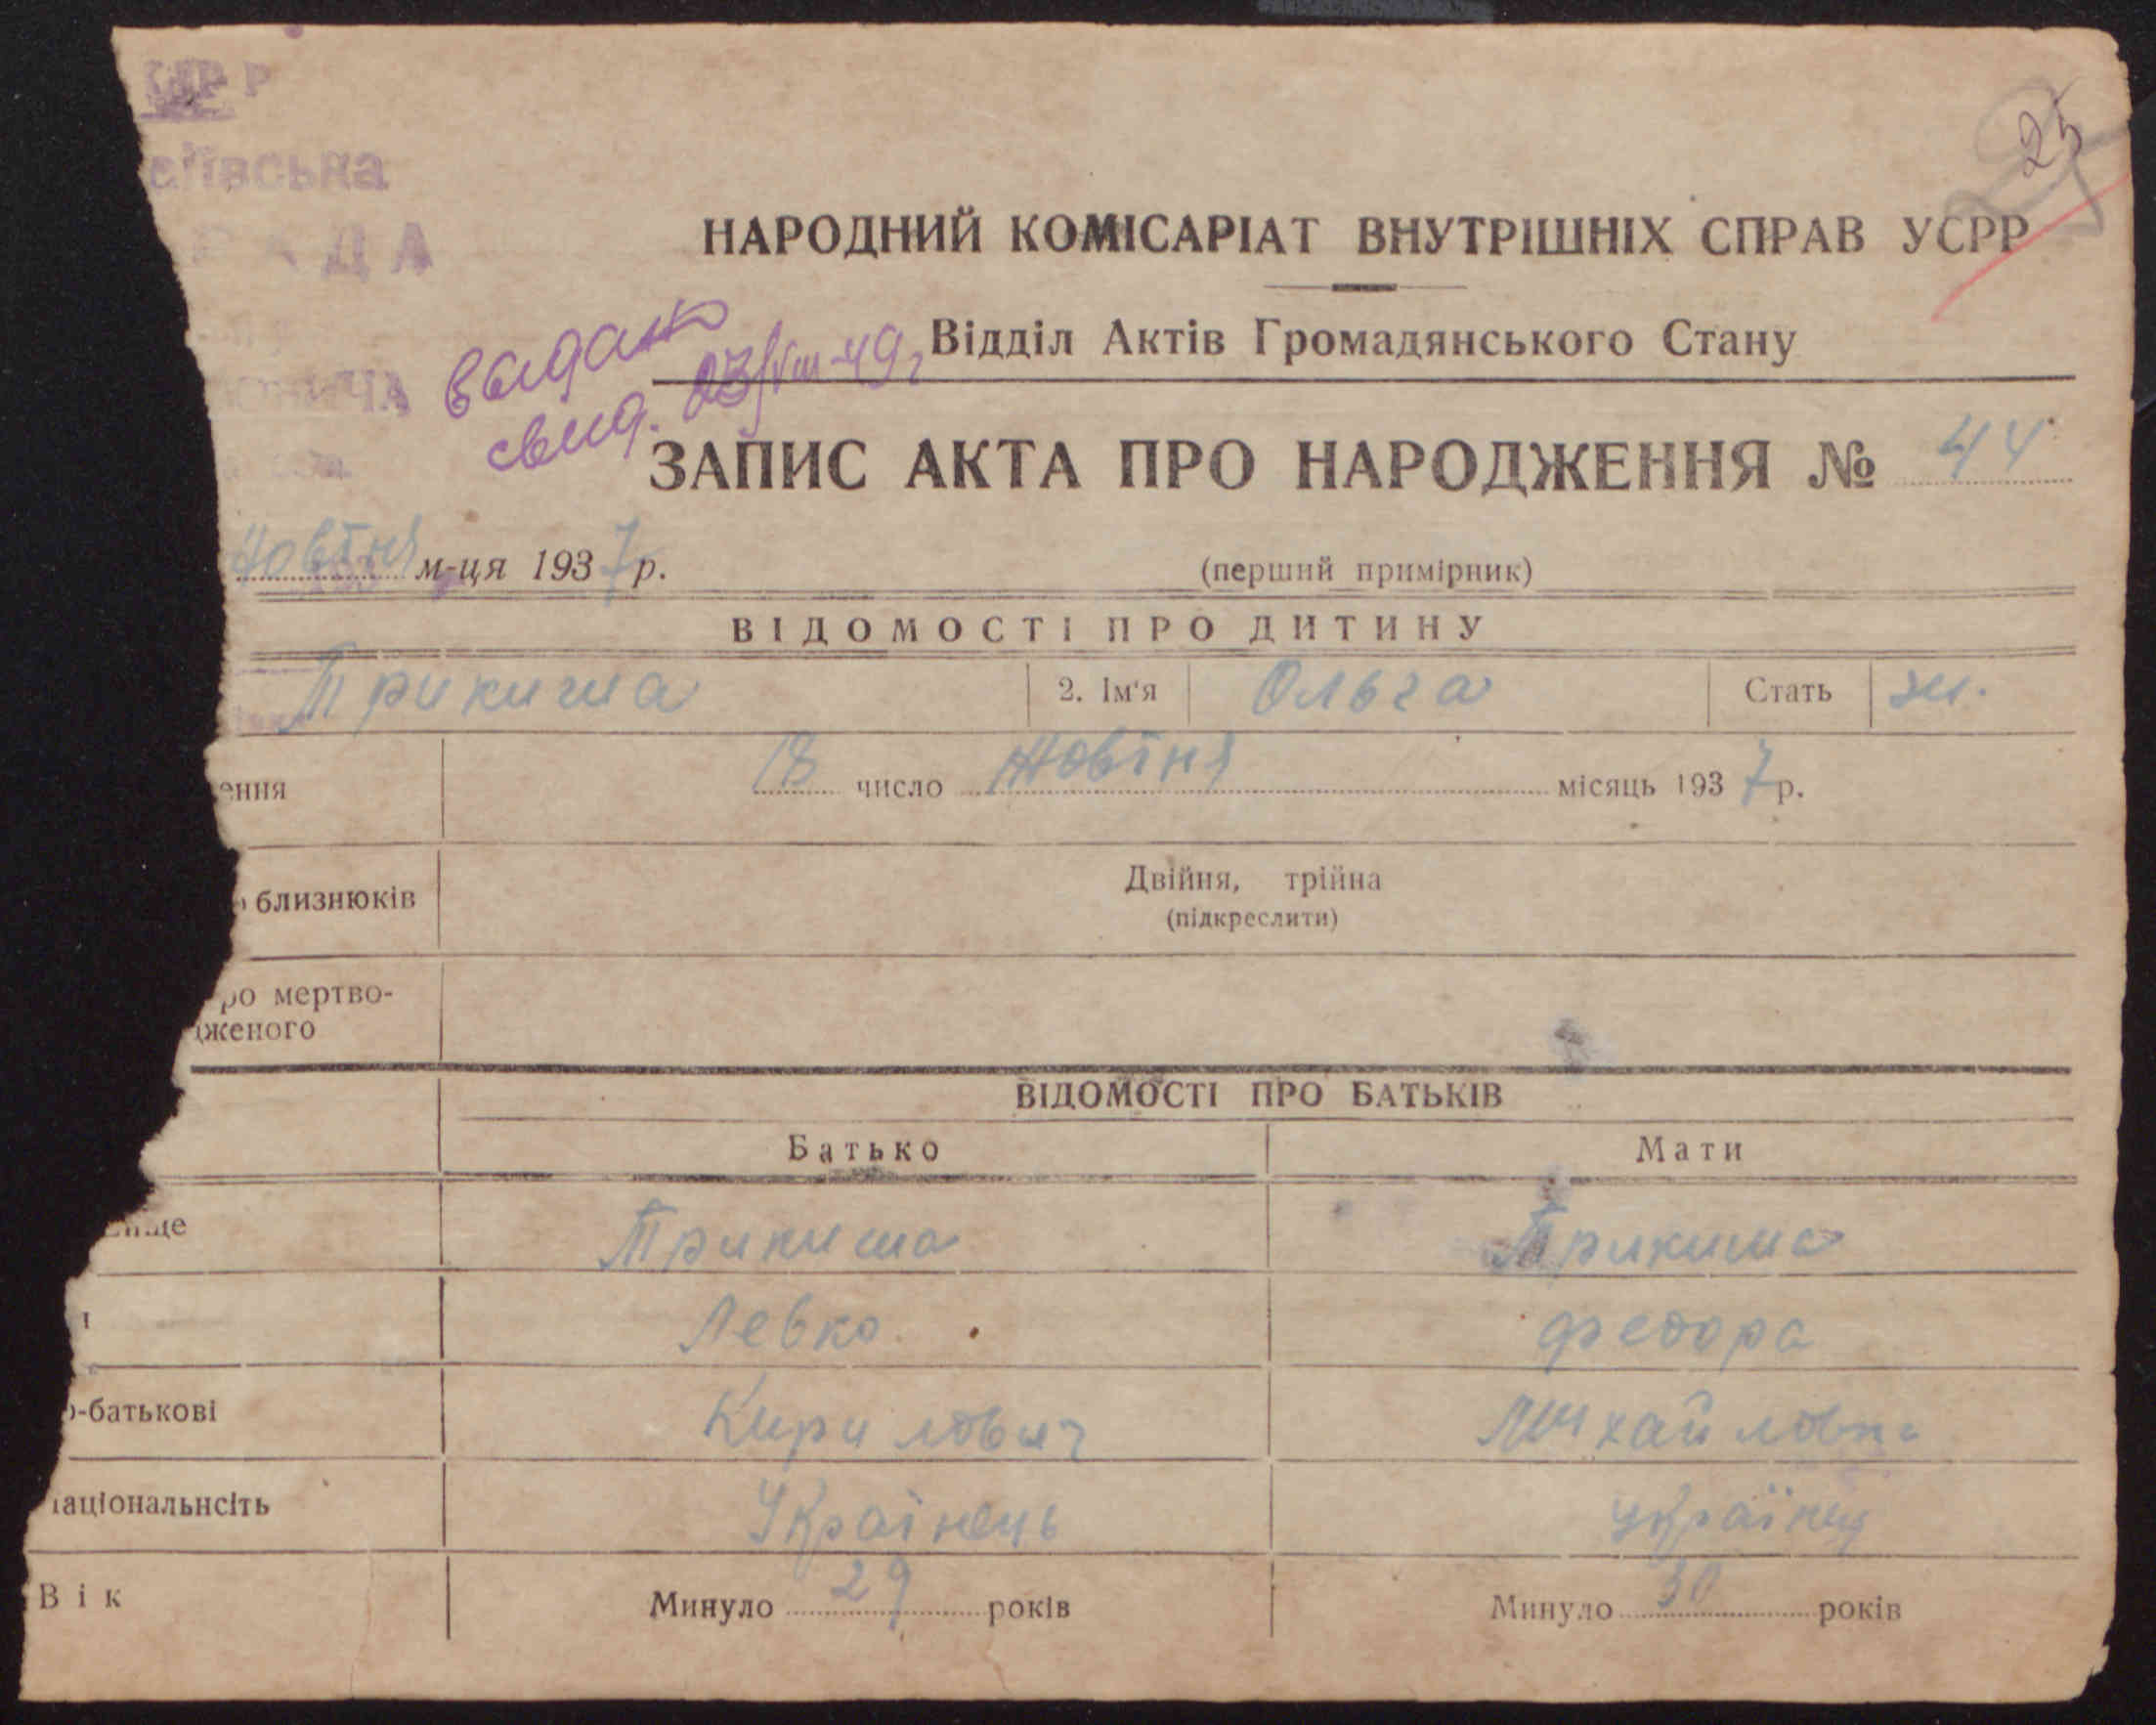 РАДА
25
НАРОДНИЙ КОМІСАРІАТ ВНУТРІШНІХ СПРАВ УСРР
Відділ Актів Громадянського Стану
видано
свид. 23/VIII-49г
ЗАПИС АКТА ПРО НАРОДЖЕННЯ № 44
Жовтня м-ця 1937 р.
(перший примірник)
ВІДОМОСТІ ПРО ДИТИНУ
Трикиша 2. Ім'я Ольга Стать ж.
ення 18 число Жовтня місяць 1937 р.
близнюків Двійня, трійна
(підкреслити)
ро мертво-
дженого
ВІДОМОСТІ ПРО БАТЬКІВ
Батько Мати
ище Трикиша Трикиша
Левко Федора
-батькові Кирилович Михайловна
аціональнсіть Українець Українка
Вік Минуло 29 років Минуло 30 років